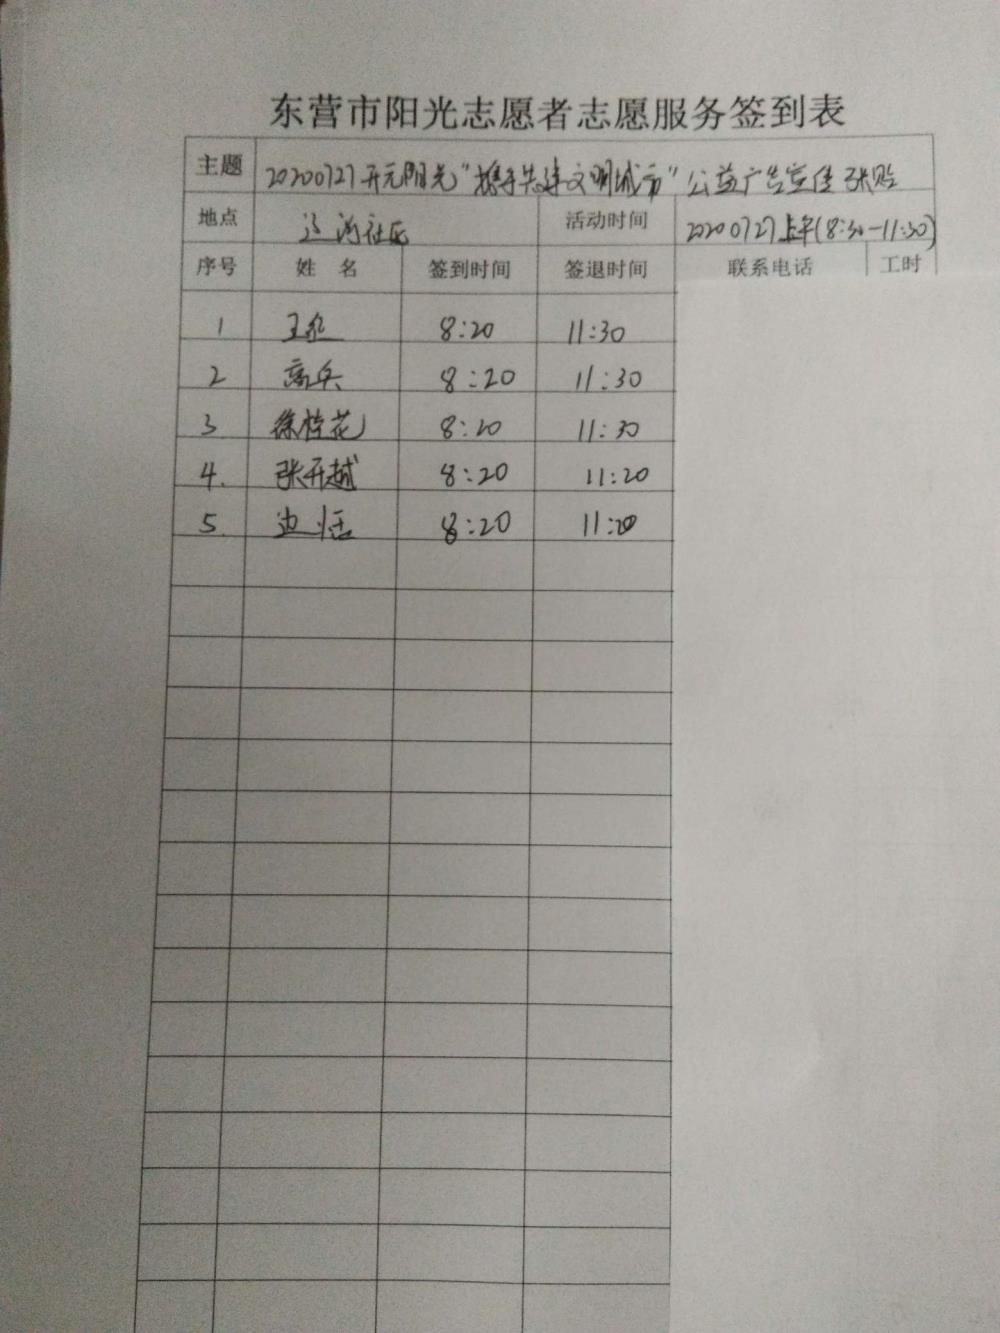 东营市阳光志愿者志愿服务签到表
主题 20200727开元阳光“携手共建文明城市”公益广告宣传张贴
地点 辽河社区 活动时间 20200727上午(8:30-11:30)
序号 姓名 签到时间 签退时间 联系电话 工时
1 王 8:20 11:30
2 高兵 8:20 11:30
3 徐桂花 8:20 11:30
4. 张开越 8:20 11:20
5. 边恬 8:20 11:20